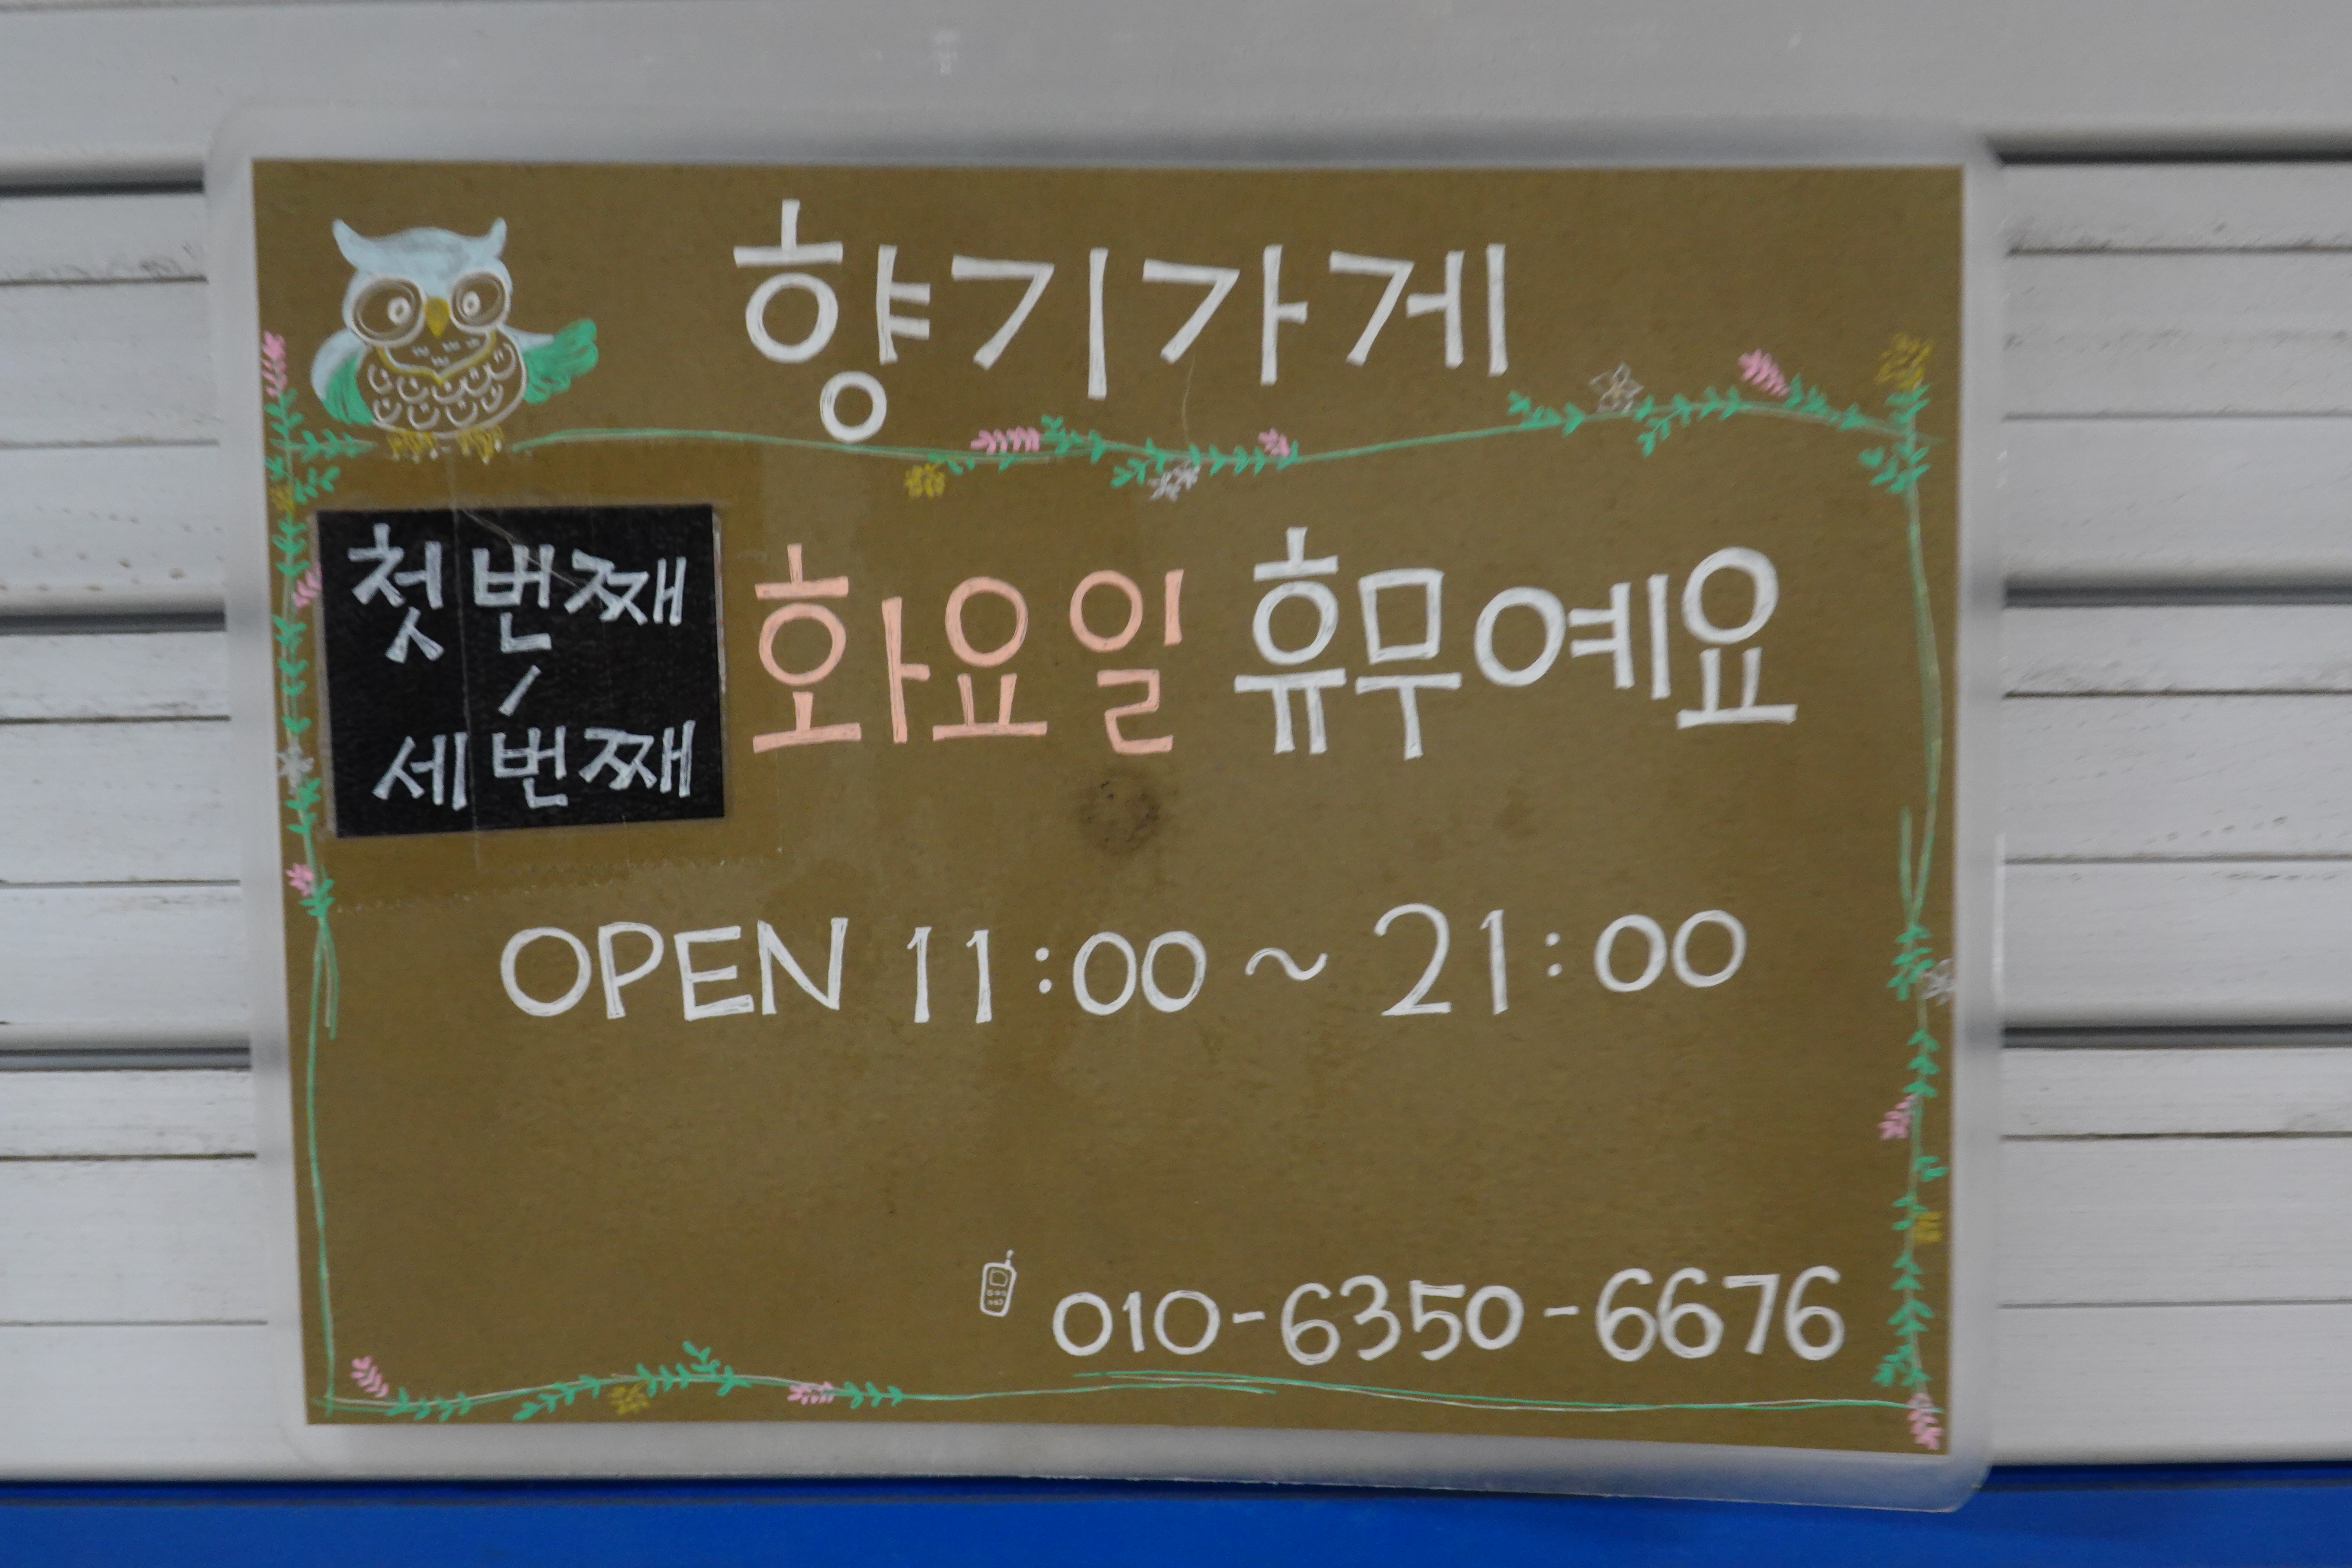 향기가게
첫번째
/
세번째
화요일 휴무예요
OPEN 11:00 ~ 21:00
010-6350-6676